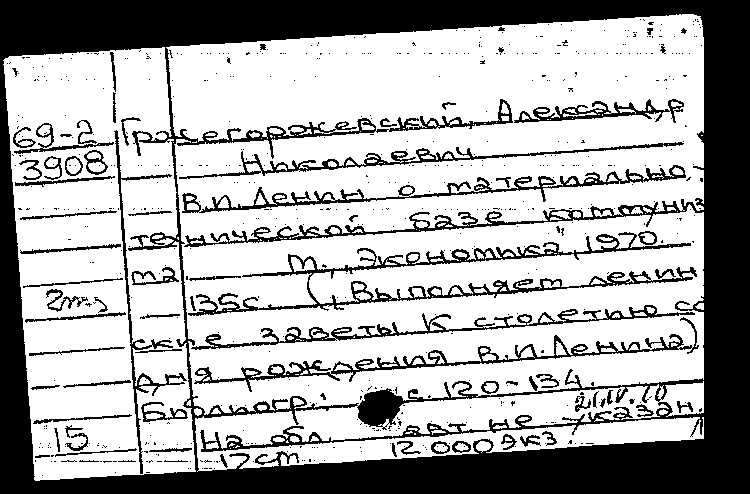 69-2 Гржегоржевский, Александр
3908 Николаевич
В.И. Ленин о материально-
технической базе коммуниз
ма. М., „Экономика", 1970.
135с. (Выполняет ленин
ские заветы К столетию со
дня рождения В.И. Ленина)
Библиогр.: с. 120-134.
15 На обл. авт. не указан.
17 cm. 12 000 экз.